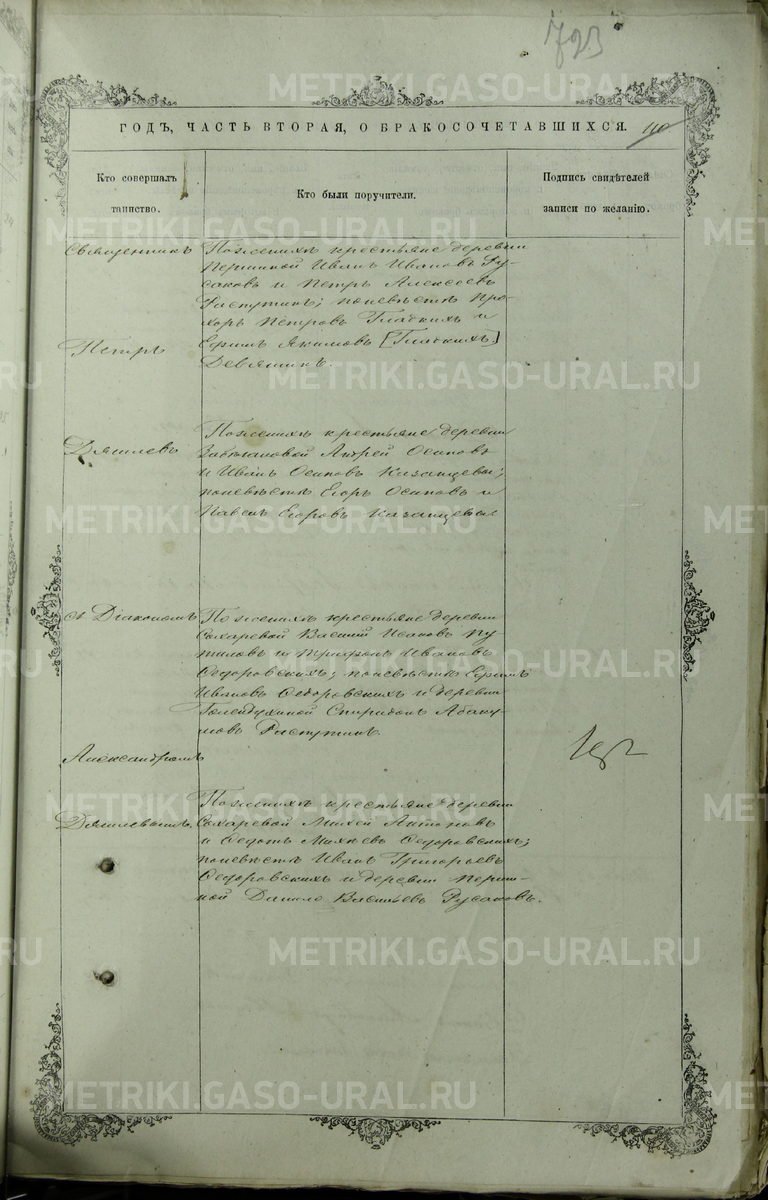 723
ГОДЪ, ЧАСТЬ ВТОРАЯ, О БРАКОСОЧЕТАВШИХСЯ.
Кто совершалъ
таинство.
Кто были поручители.
Подпись свидѣтелей
записи по желанію.
Священникъ
Петръ
съ Діакономъ
Александромъ
По женихѣ крестьяне деревни
Першиной Иванъ Ивановъ Ру-
саковъ и Петръ Алексѣевъ
Распутинъ; по невѣстѣ Про-
хоръ Петровъ Гладкихъ и
Ефимъ Якимовъ [Гладкихъ]
Девяшинъ.
По женихѣ крестьяне деревни
Андрей Осиповъ
и Иванъ Осиповъ Казанцевы;
по невѣстѣ Егоръ Осиповъ и
Павелъ Егоровъ Казанцевы
По женихѣ крестьяне деревни
Сохаревой Василій Исаковъ Пу-
тиловъ и Трифонъ Ивановъ
Ѳедоровскихъ; по невѣстѣ Ефимъ
Ивановъ Ѳедоровскихъ и деревни
Голендухиной Спиридонъ Абаку-
мовъ Распутинъ.
По женихѣ крестьяне деревни
Сохаревой Михей Антоновъ
и Ѳедотъ Михѣевъ Ѳедоровскихъ;
по невѣстѣ Иванъ Григорьевъ
Ѳедоровскихъ и деревни Перши-
ной Данило Васильевъ Русаковъ.
METRIKI.GASO-URAL.RU